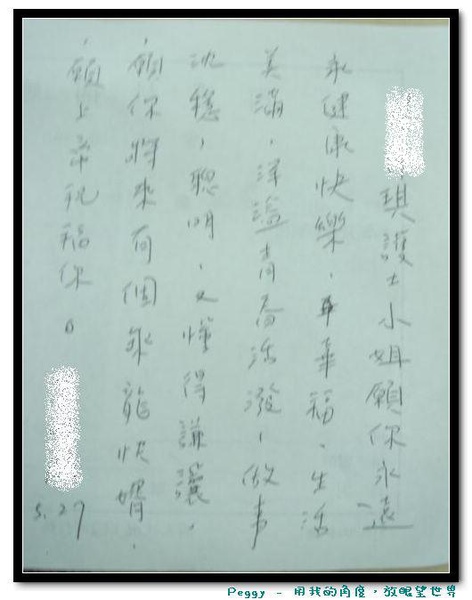 琪護士小姐願你永遠
永健康快樂、福、生活
美滿,洋溢青春活潑,做事
沈穩,聰明、又懂得謙讓,
願你將來有個乘龍快婿,
願上帝祝福你。
5.27
Peggy - 用我的角度,放眼望世界